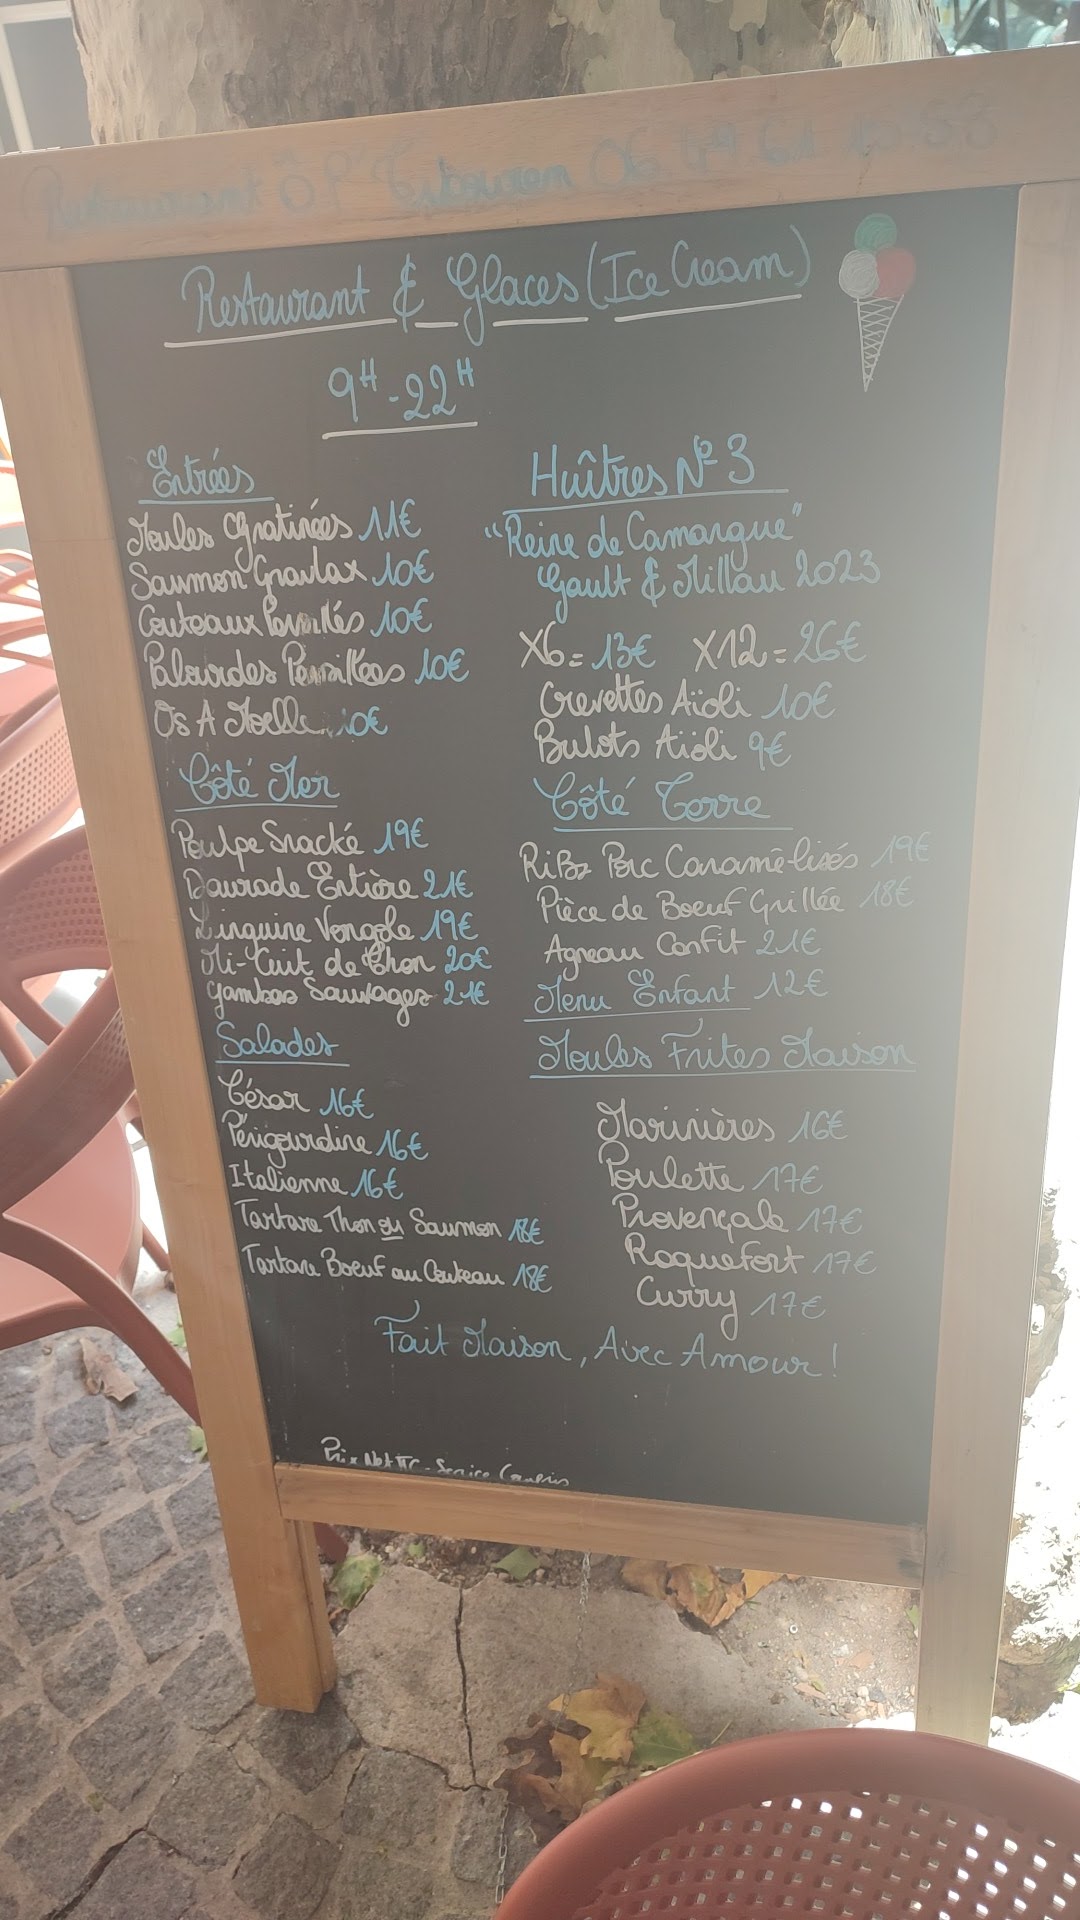 Restaurant Ô P'tit 06 49 61
Restaurant & Glaces (Ice Cream)
9H - 22H
Entrées
Moules Gratinées 11€
Saumon Gravlax 10€
Couteaux Persillés 10€
Palourdes Persillées 10€
Os A Moelle 10€
Côté Mer
Poulpe Snacké 19€
Daurade Entière 21€
Linguine Vongole 19€
Mi-Cuit de Thon 20€
Gambas Sauvages 21€
Salades
César 16€
Périgourdine 16€
Italienne 16€
Tartare Thon ou Saumon 18€
Tartare Boeuf au Couteau 18€
Huîtres N° 3
"Reine de Camargue"
Gault & Millau 2023
X6 = 13€ X12 = 26€
Crevettes Aïoli 10€
Bulots Aïoli 9€
Côté Terre
Ribs Porc Caramélisés 19€
Pièce de Boeuf Grillée 18€
Agneau Confit 21€
Menu Enfant 12€
Moules Frites Maison
Marinières 16€
Poulette 17€
Provençale 17€
Roquefort 17€
Curry 17€
Fait Maison, Avec Amour !
Prix Net TTC - Service Compris